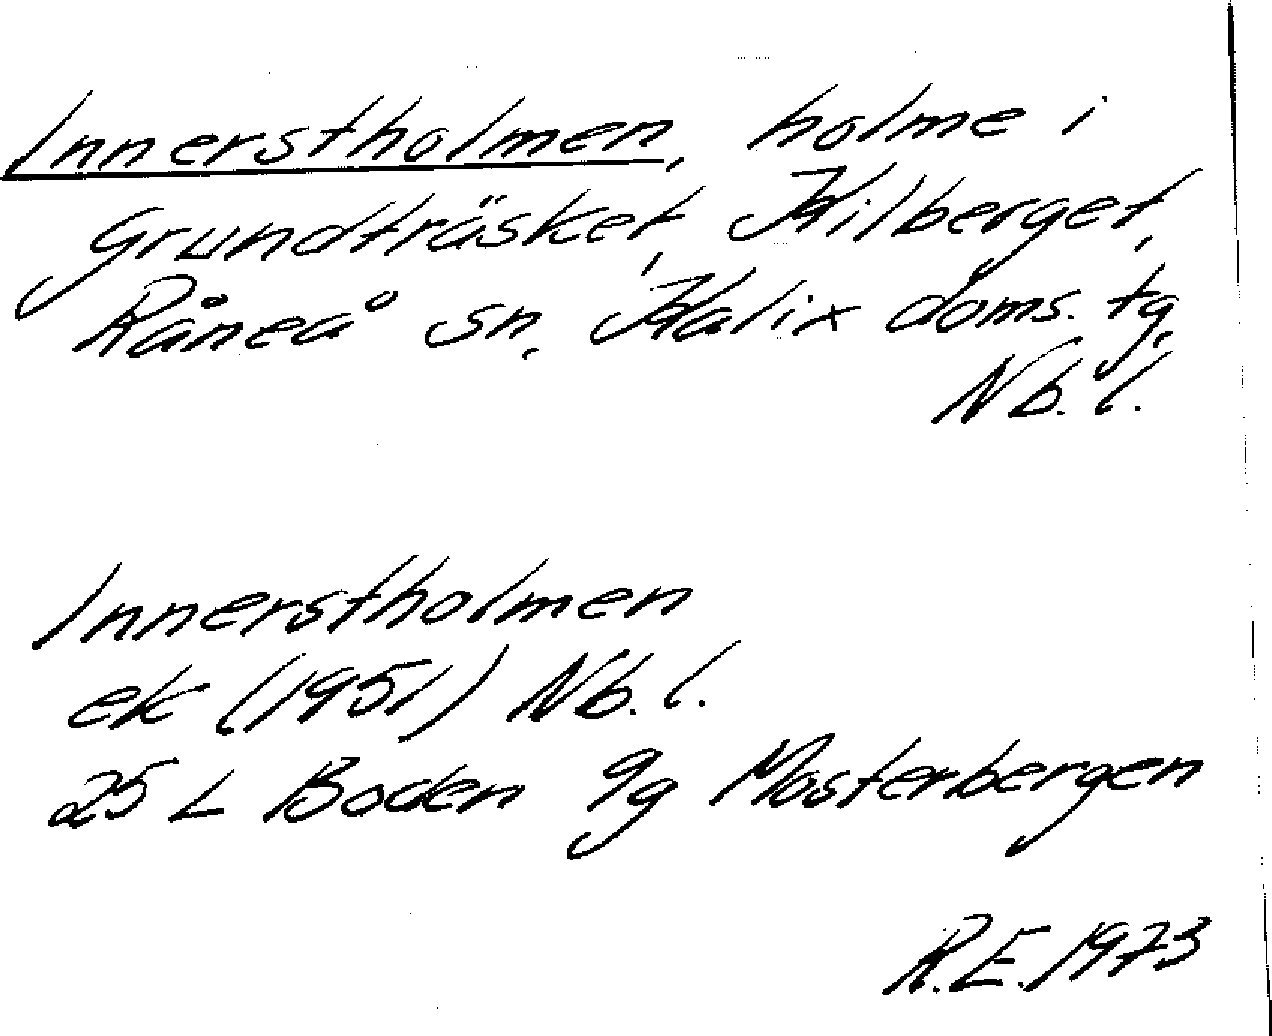 Innerstholmen, holme i
Grundträsket, Kilberget,
Råneå sn, Kalix doms. tg,
Nb. l.
Innerstholmen
ek (1951) Nb. l.
25 L Boden 9g Mosterbergen
R.E. 1973